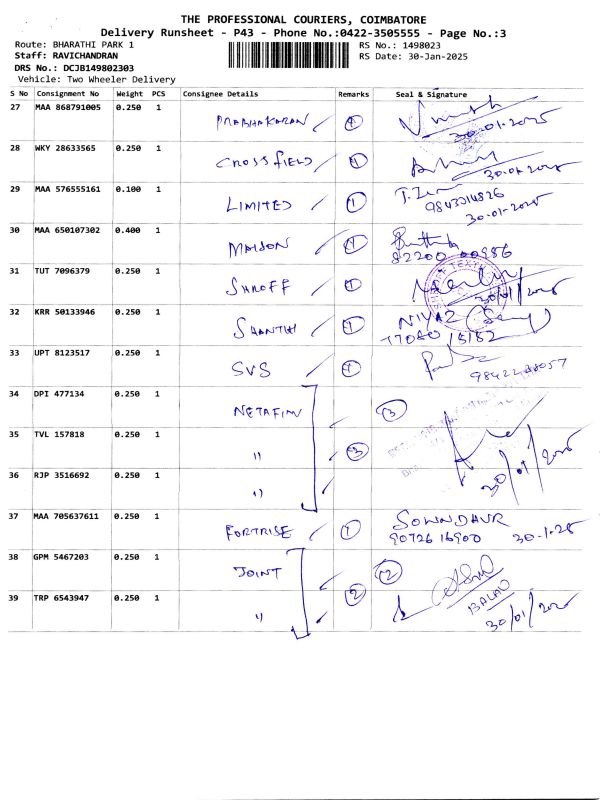 THE PROFESSIONAL COURIERS, COIMBATORE
Delivery Runsheet - P43 - Phone No.:0422-3505555 - Page No.:3
Route: BHARATHI PARK 1 RS No.: 1498023
Staff: RAVICHANDRAN RS Date: 30-Jan-2025
DRS No.: DCJB149802303
Vehicle: Two Wheeler Delivery
S No Consignment No Weight PCS Consignee Details Remarks Seal & Signature
27 MAA 868791005 0.250 1 PRABHAKARAN 1 30-01-2025
28 WKY 28633565 0.250 1 CROSSFIELD 1 30-01-2025
29 MAA 576555161 0.100 1 LIMITED 1
30-01-2025
30 MAA 650107302 0.400 1 MAISON 1
31 TUT 7096379 0.250 1 SHROFF 1 30/01/2025
32 KRR 50133946 0.250 1 SHANTHI 1 NIYAZ
33 UPT 8123517 0.250 1 SVS 1
34 DPI 477134 0.250 1 NETAFIM 3
35 TVL 157818 0.250 1 " 3
36 RJP 3516692 0.250 1 " 30/01/2025
37 MAA 705637611 0.250 1 FORTRISE 1
90726 16900 30-1-25
38 GPM 5467203 0.250 1 JOINT 2
39 TRP 6543947 0.250 1 " 2 BALAU
30/01/2025